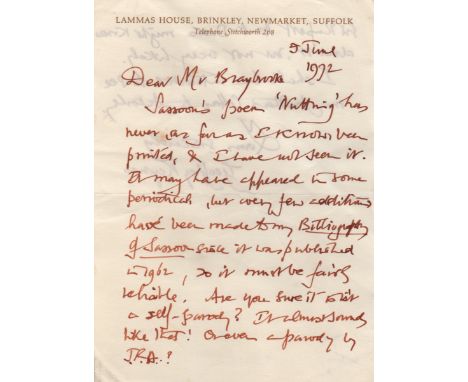 LAMMAS HOUSE, BRINKLEY, NEWMARKET, SUFFOLK
Telephone Stetchworth 268
5 June
1972
Dear Mr Braybrooke
Sassoon's poem 'Nutting' has
never, as far as I know, been
printed, & I have not seen it.
It may have appeared in some
periodical, but very few additions
have been made to my Bibliography
of Sassoon since it was published
in 1962, so it must be fairly
reliable. Are you sure it isn't
a self-parody? It almost sounds
like that! Or even a parody by
J.R.A.?